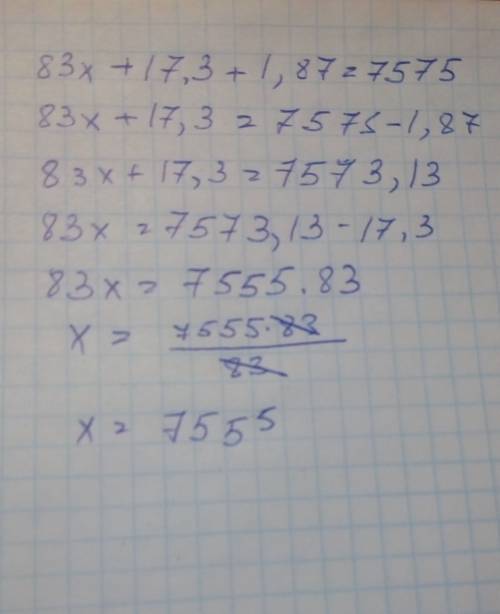 83x + 17,3 + 1,87 = 7575
83x + 17,3 = 7575 - 1,87
83x + 17,3 = 7573,13
83x = 7573,13 - 17,3
83x = 7555.83
x = 7555.83 / 83
x = 7555